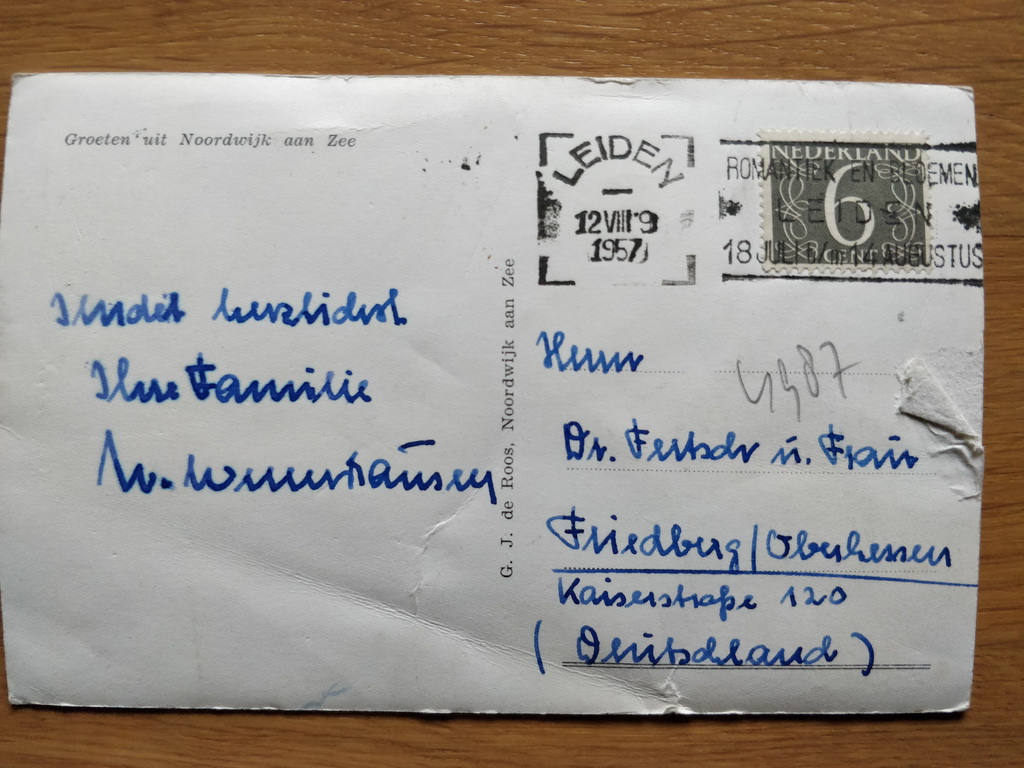 Groeten uit Noordwijk aan Zee
LEIDEN
12 VIII 9
1957
ROMANTIEK EN BLOEMEN
LEIDEN
18 JULI t/m 14 AUGUSTUS
NEDERLAND
6
CENT
G. J. de Roos, Noordwijk aan Zee
sendet herzlichst
Ihre Familie
W.
Herrn
Dr. Fertsch u. Frau
Friedberg/Oberhessen
Kaiserstraße 120
(Deutschland)